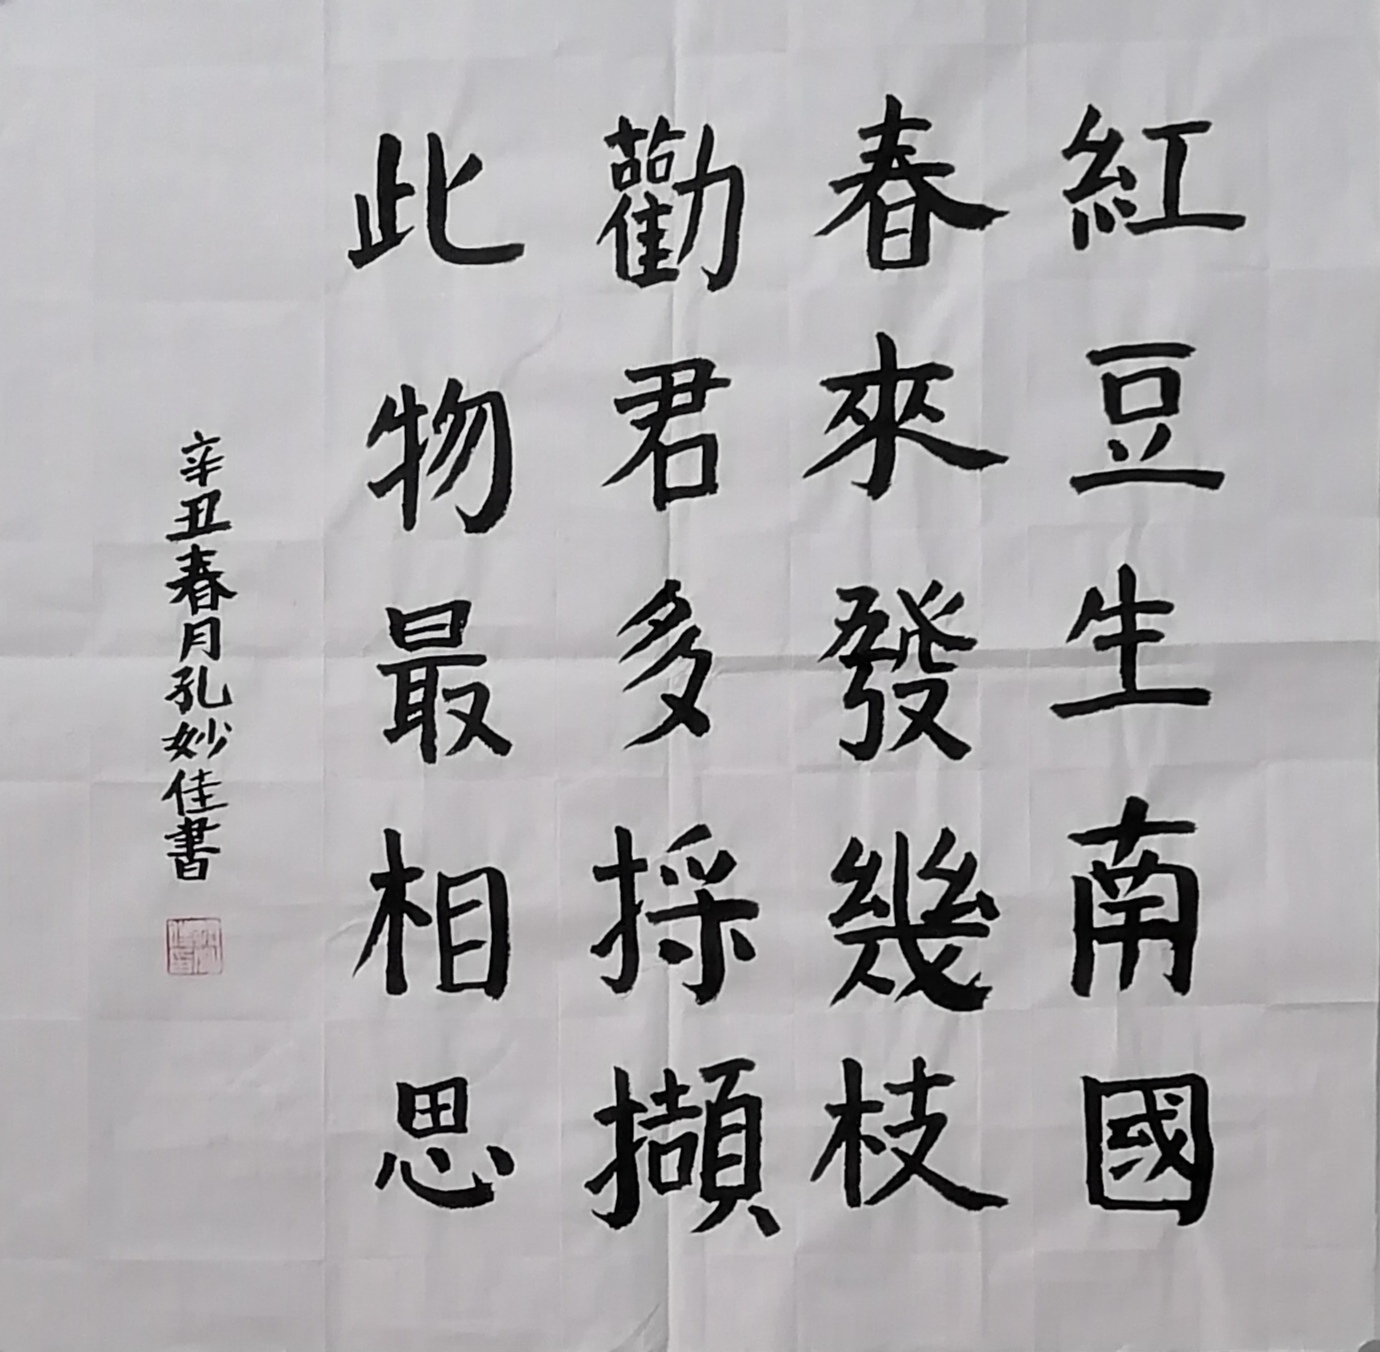 紅豆生南國
春來發幾枝
勸君多採擷
此物最相思
辛丑春月孔妙佳書